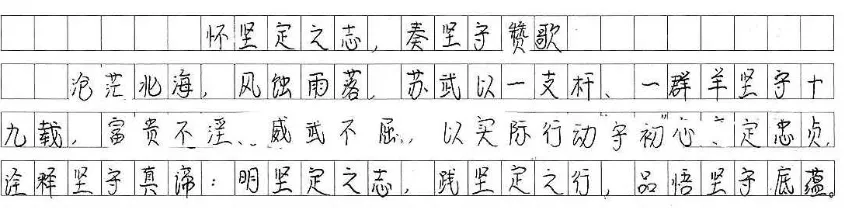 怀坚定之志，奏坚守赞歌
沧茫北海，风蚀雨著，苏武以一支杆、一群羊坚守十
九载，富贵不淫、威武不屈，以实际行动“守初心、定忠贞，
诠释坚守真谛：明坚定之志，践坚定之行，品悟坚守底蕴。